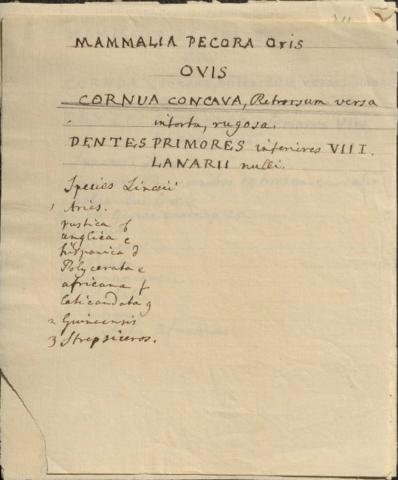 MAMMALIA PECORA Ovis
OVIS
CORNUA CONCAVA, Retrorsum versa
intorta, rugosa.
DENTES PRIMORES inferiores VIII.
LANARII nulli.
Species Linnei
1 Aries.
rustica b
anglica c
hispanica d
Polycerata e
africana f
Laticaudata g
2 Guineensis
3 Strepsiceros.